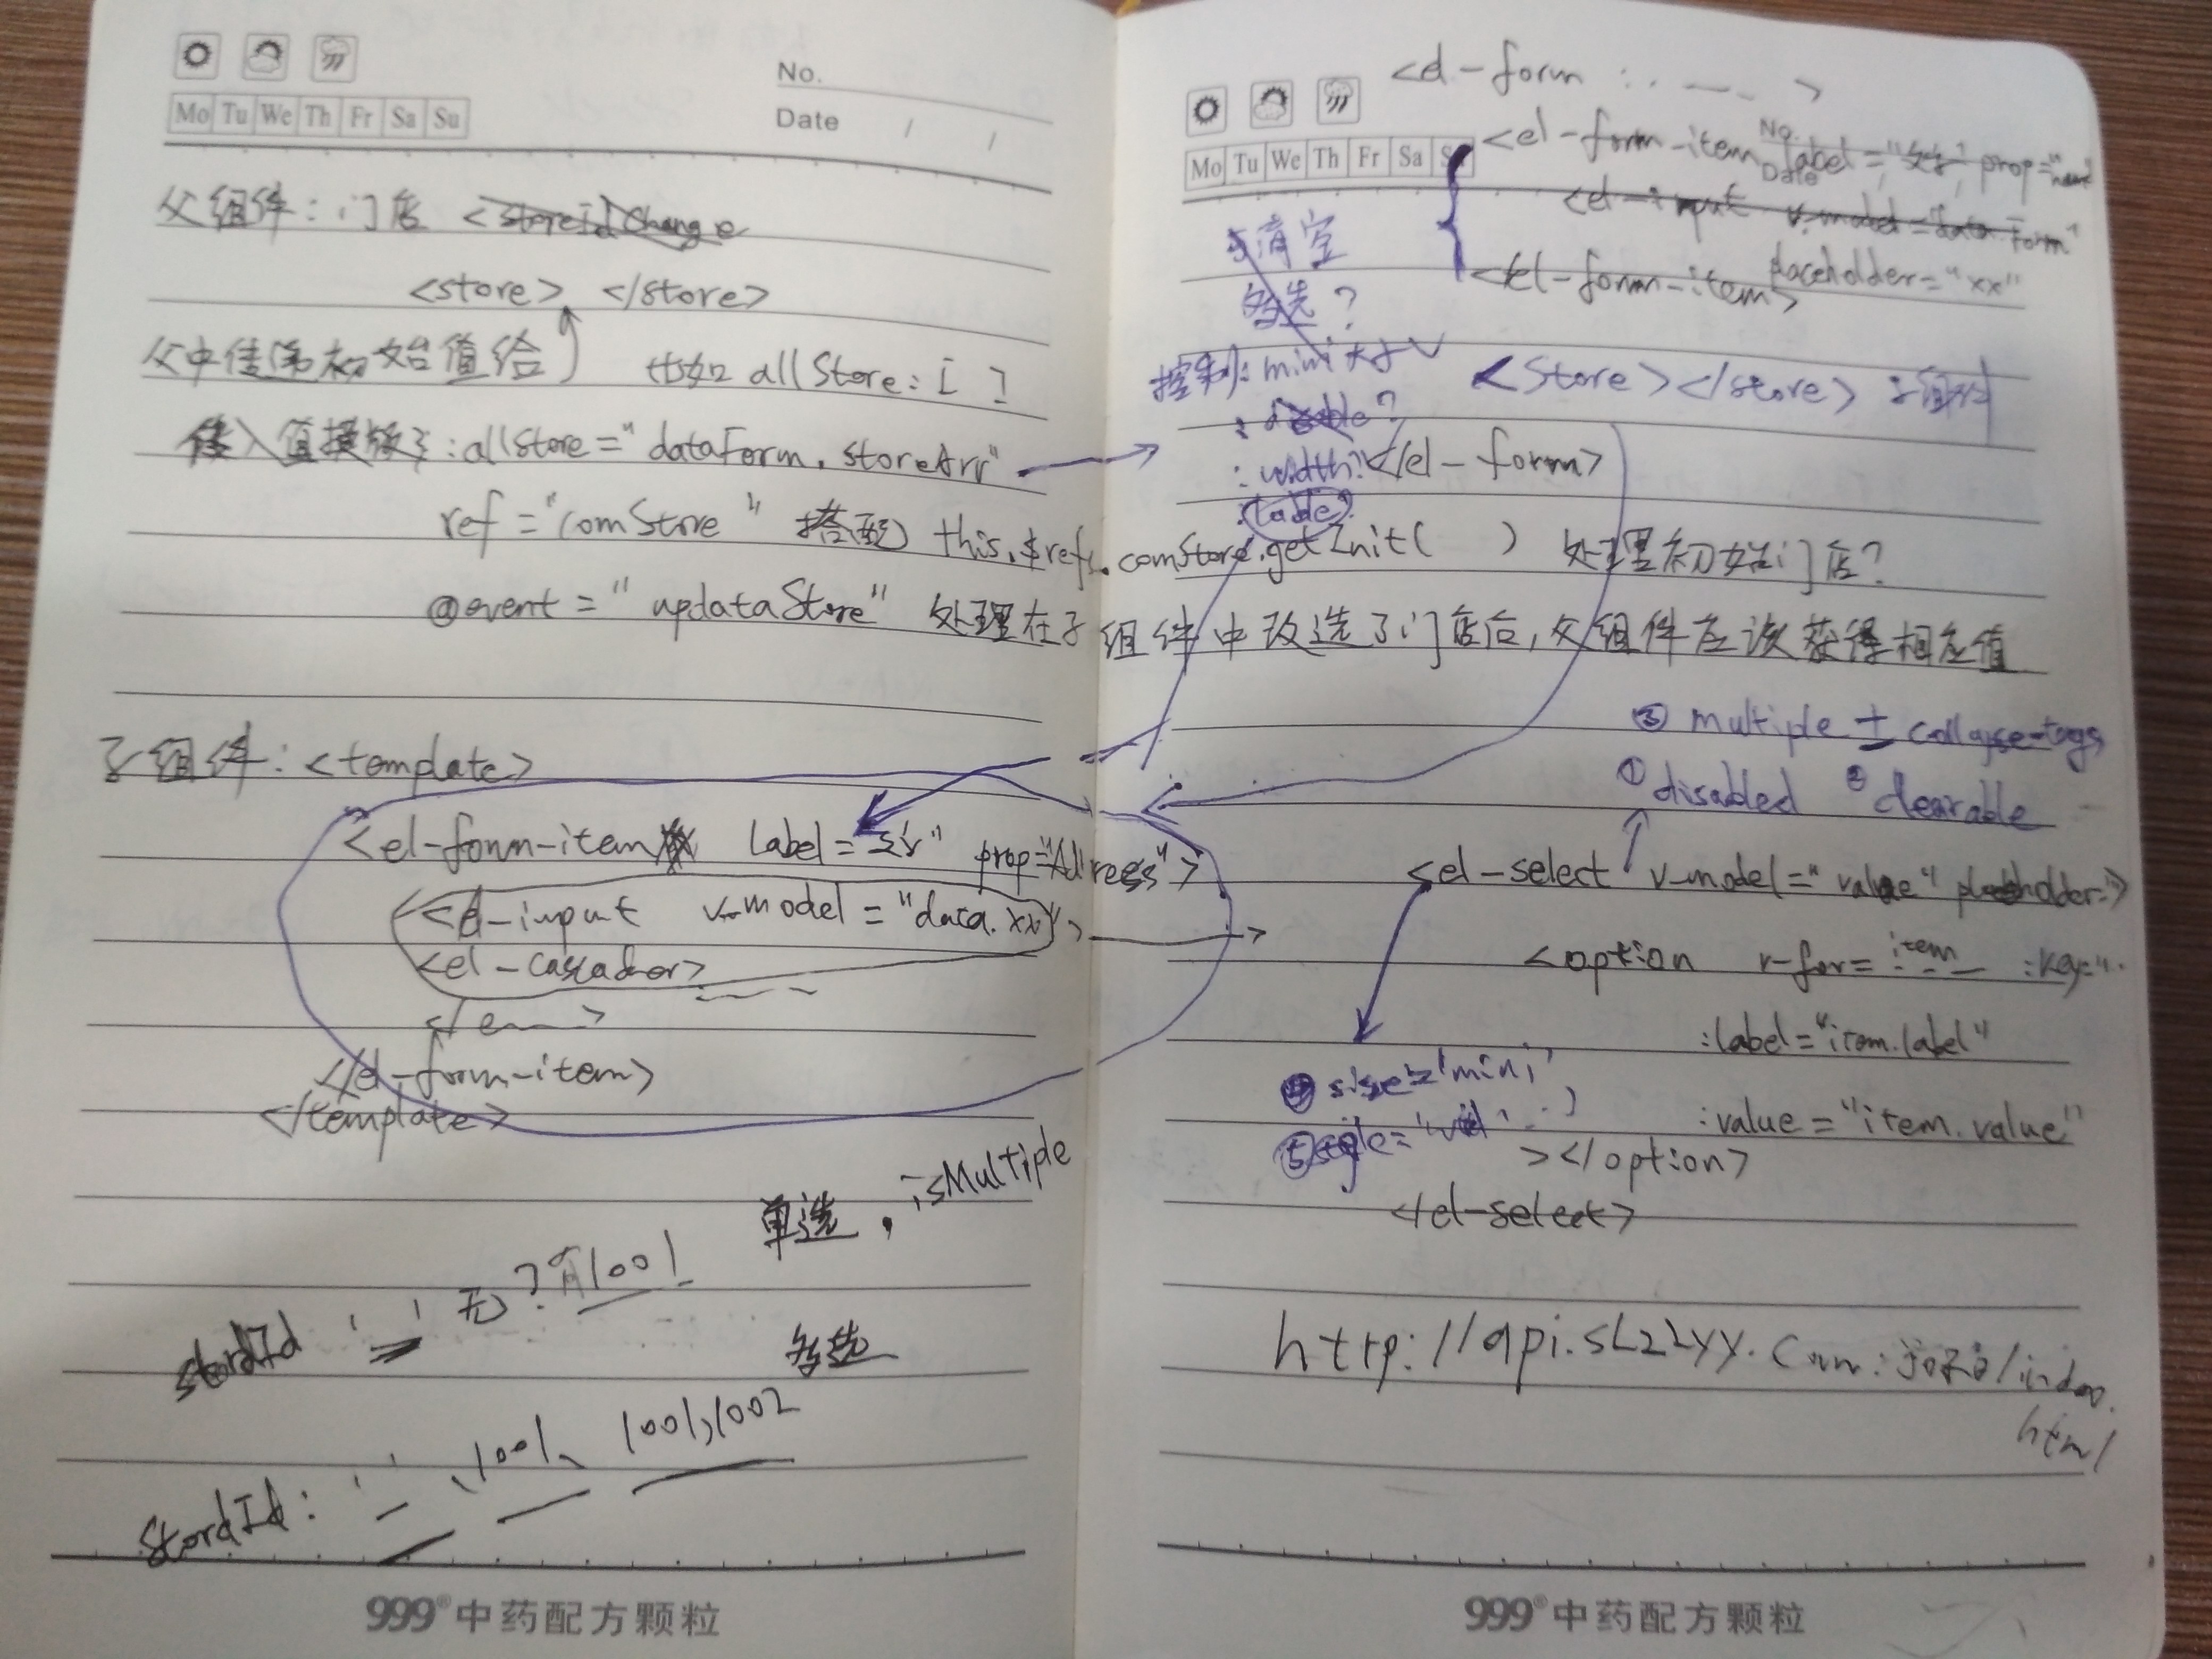 No.
Mo Tu We Th Fr Sa Su
Date / /
父组件: 门店 <storeIdChange
<store> </store>
父中传递初始值给 比如 allStore: [ ]
传入值 :allStore="dataForm.storeArr"
ref="comStore" 搭配 this.$refs.comStore.getInit( ) 处理初始门店?
@event="updataStore" 处理在子组件中改选了门店后,父组件应该获得相应值
子组件: <template>
<el-form-item label= prop="Address">
<el-input v-model="data.xx">
<el-cascader>
</e >
</el-form-item>
</template>
单选, isMultiple
stordId ' ' 无? 有1001
多选
StordId: ' ' 、1001、 1001,1002
999®中药配方颗粒
<el-form : . — — >
Mo Tu We Th Fr Sa
No.
Date
<el-form-item label= prop="name"
<el-input v-model="dataForm"
placeholder="xx"
</el-form-item>
清空
多选?
控制: mini
<Store></store> 子组件
: width?
</el-form>
table?
③ multiple ± collapse-tags
① disabled ② clearable
<el-select v-model="value" placeholder= >
<option v-for= item :key="
:label="item.label"
④ size='mini'
:value="item.value"
⑤
></option>
</el-select>
html
999®中药配方颗粒